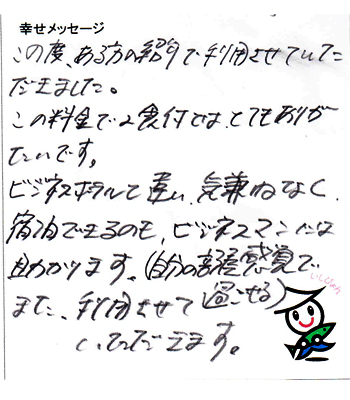 幸せメッセージ
この度、ある方の紹介で利用させていた
だきました。
この料金で2食付では、とてもありが
たいです。
ビジネスホテルと違い、気兼ねなく、
宿泊できるのも、ビジネスマンには
助かります。(自分の部屋感覚で
過ごせる)
また、利用させて
いただきます。